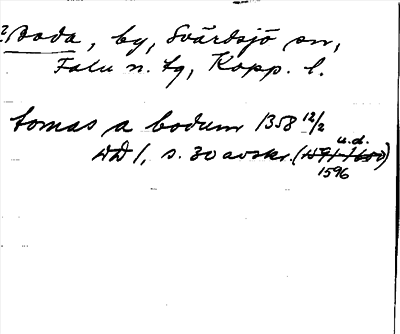 ?) Boda, by, Svärdsjö sn,
Falu n. tg, Kopp. l.
tomas a bodum 1358 12/2
DD 1, s. 30 avskr. (u.d.)
1596